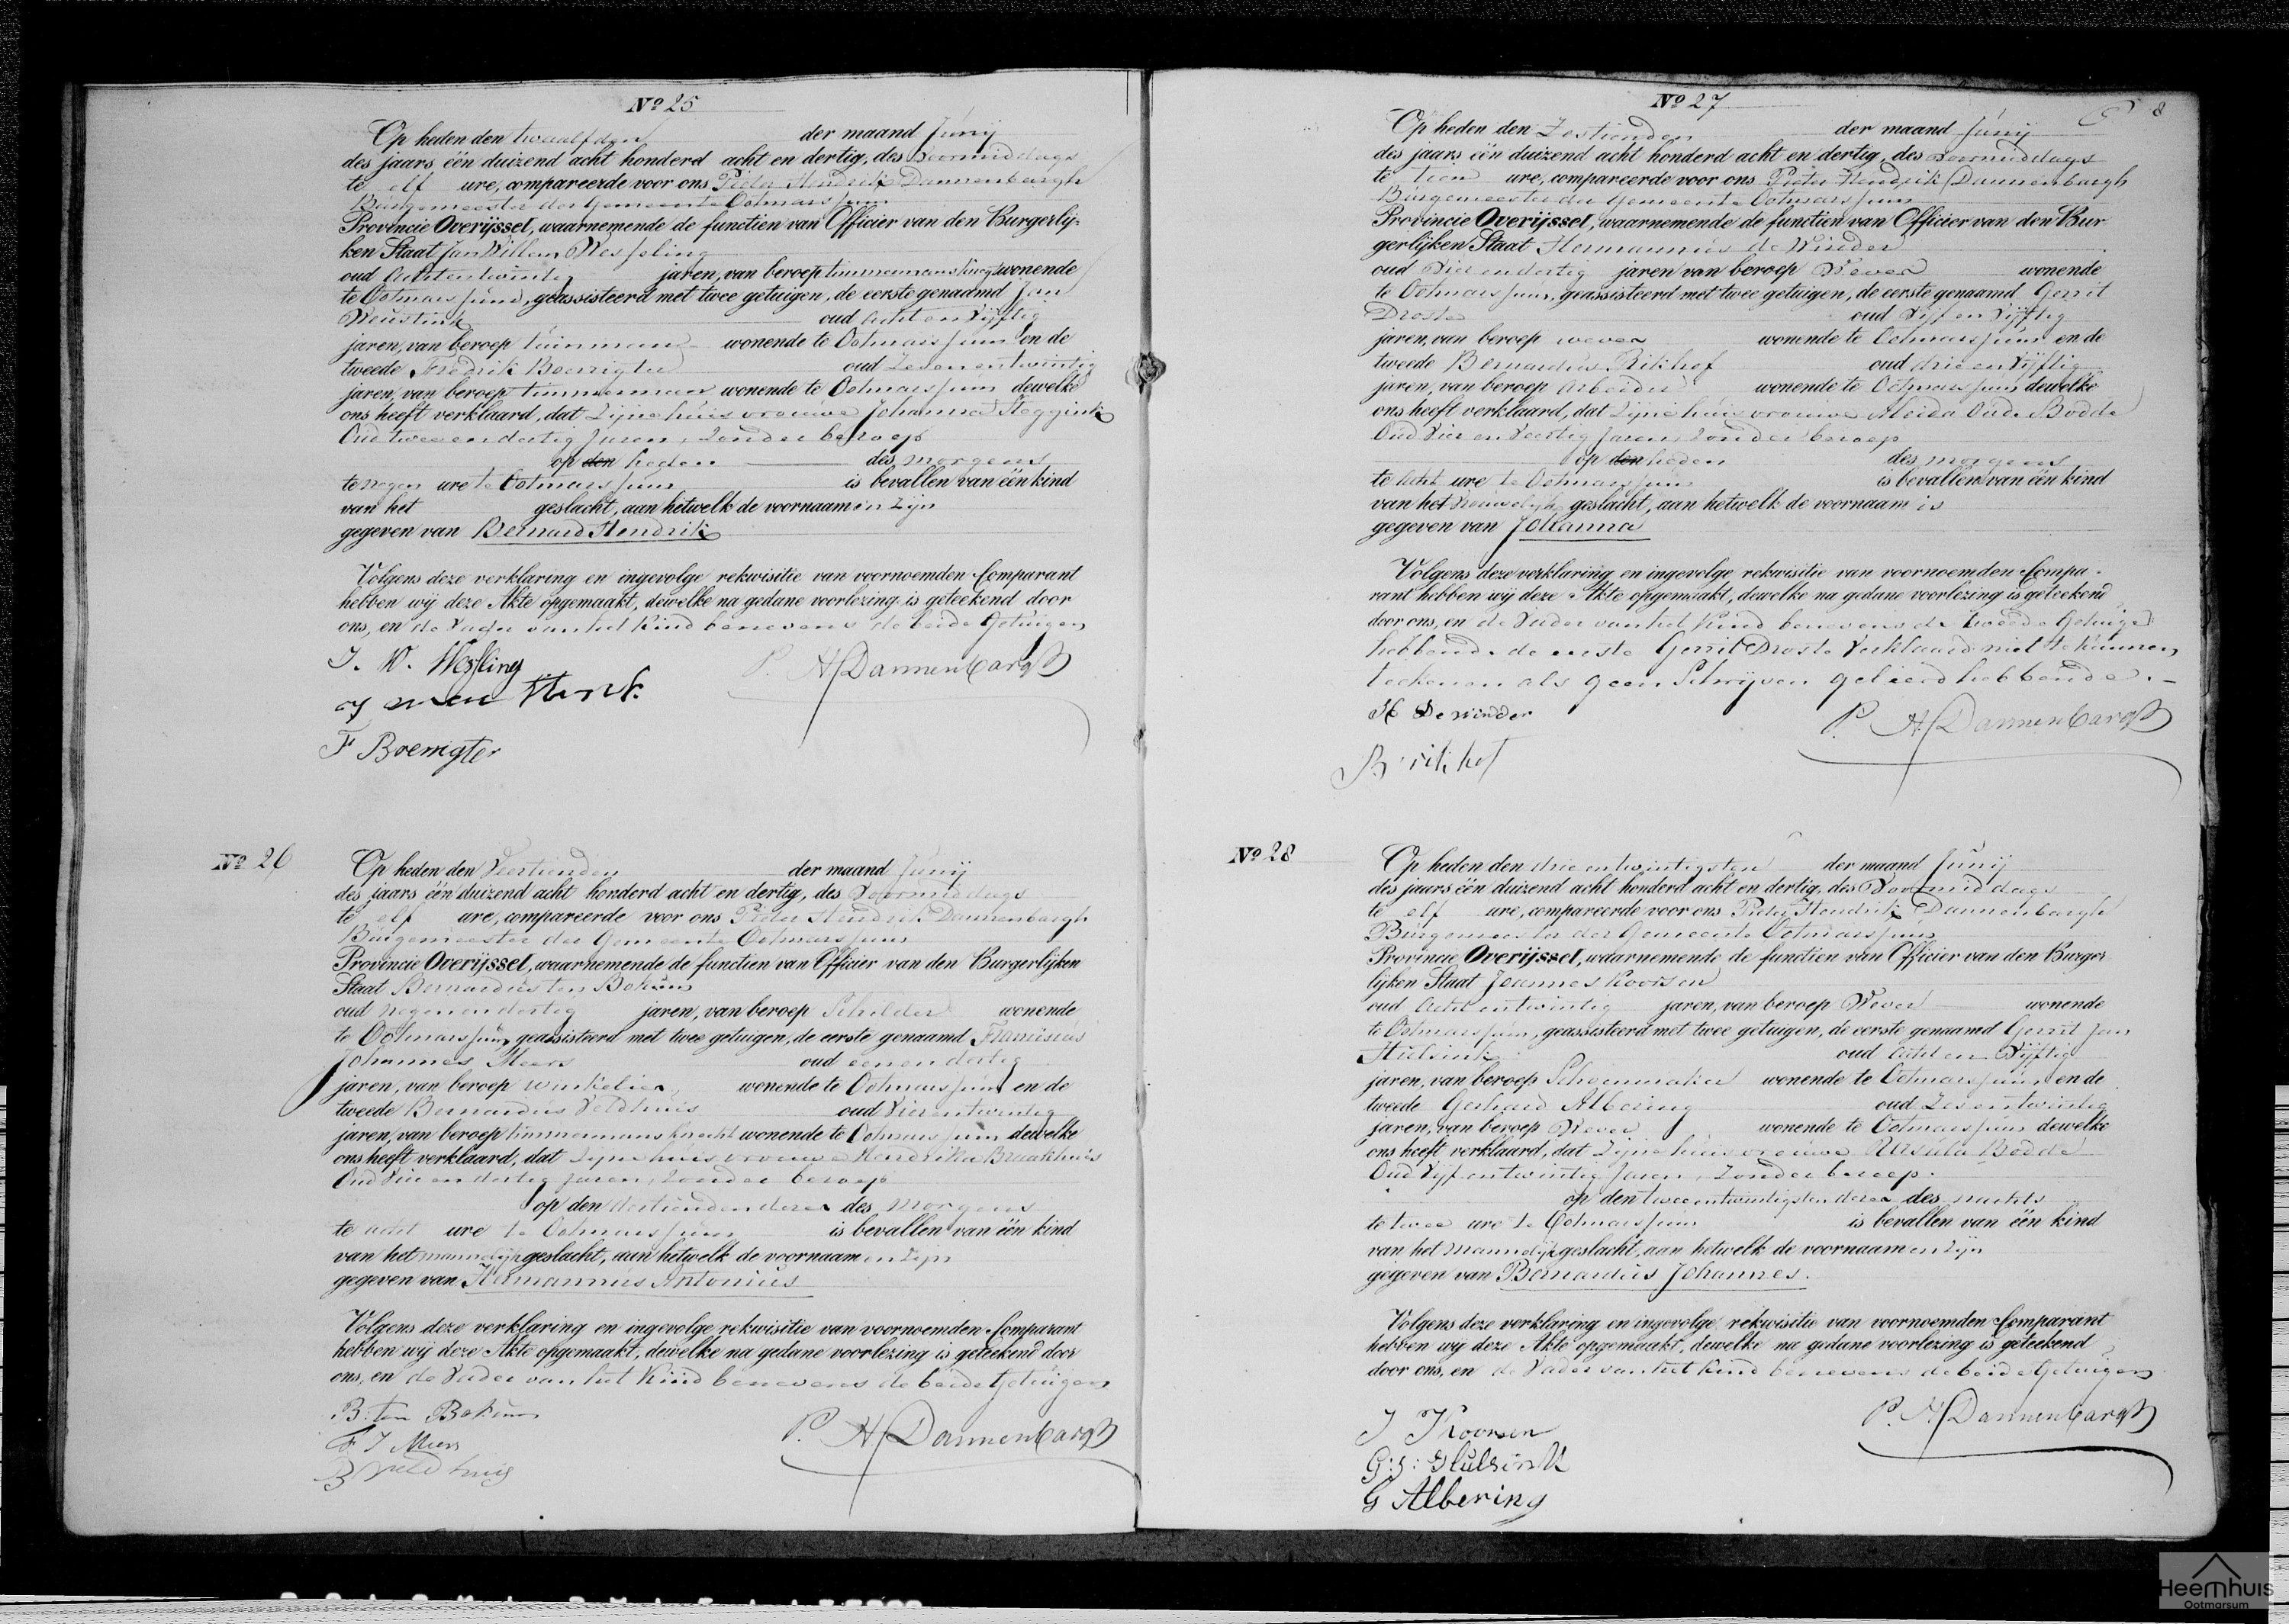 Nº 25
Op heden den twaalfden der maand Junij
des jaars één duizend acht honderd acht en dertig, des voormiddags
te elf ure, compareerde voor ons Pieter Hendrik Dannenbargh
Burgemeester der Gemeente Ootmarssum
Provincie Overijssel, waarnemende de functien van Officier van den Burgerlij-
ken Staat Jan Willem Wesseling
oud achtentwintig jaren, van beroep timmermansknegt wonende
te Ootmarssum, geassisteerd met twee getuigen, de eerste genaamd Jan
oud acht en Vijftig
jaren, van beroep tuinman wonende te Ootmarssum en de
tweede Fredrik Boerrigter oud Zevenentwintig
jaren, van beroep timmerman wonende te Ootmarssum dewelke
ons heeft verklaard, dat Zijne huisvrouwe Johanna Steggink
Oud twee en dertig Jaren, Zonder beroep
op den heden des morgens
te negen ure te Ootmarssum is bevallen van één kind
van het geslacht, aan hetwelk de voornaamen zijn
gegeven van Bernard Hendrik
Volgens deze verklaring en ingevolge rekwisitie van voornoemden Comparant
hebben wij deze Akte opgemaakt, dewelke na gedane voorlezing is geteekend door
ons, en de Vader van het Kind benevens de beide Getuigen
J. W. Wessling
P. H. Dannenbargh
F Boerrigter
Nº 26
Op heden den Veertienden der maand Junij
des jaars één duizend acht honderd acht en dertig, des Voormiddags
te elf ure, compareerde voor ons Pieter Hendrik Dannenbargh
Burgemeester der Gemeente Ootmarssum
Provincie Overijssel, waarnemende de functien van Officier van den Burgerlijken
Staat Bernardus ten Bokum
oud negenendertig jaren, van beroep Schilder wonende
te Ootmarssum, geassisteerd met twee getuigen, de eerste genaamd Franciscus
Johannes Meers oud eenendertig
jaren, van beroep winkelier wonende te Ootmarssum en de
tweede Bernardus Veldhuis oud Vierentwintig
jaren, van beroep timmermansknecht wonende te Ootmarssum dewelke
ons heeft verklaard, dat Zijne huisvrouwe Hendrika Braakhuis
Oud Vier en dertig Jaren, Zonder beroep
op den dertienden dezer des morgens
te acht ure te Ootmarssum is bevallen van één kind
van het mannelijk geslacht, aan hetwelk de voornaamen zijn
gegeven van Hermannus Antonius
Volgens deze verklaring en ingevolge rekwisitie van voornoemden Comparant
hebben wij deze Akte opgemaakt, dewelke na gedane voorlezing is geteekend door
ons, en de Vader van het Kind benevens de beide Getuigen
B: ten Bokum
P. H. Dannenbargh
F J Meers
B Veldhuis
8
Nº 27
Op heden den Zestienden der maand Junij
des jaars één duizend acht honderd acht en dertig, des voormiddags
te tien ure, compareerde voor ons Pieter Hendrik Dannenbargh
Burgemeester der Gemeente Ootmarssum
Provincie Overijssel, waarnemende de functien van Officier van den Bur-
gerlijken Staat Hermannus de Winder
oud Vier en dertig jaren van beroep Wever wonende
te Ootmarssum, geassisteerd met twee getuigen, de eerste genaamd Gerrit
Droste oud Vijf en Vijftig
jaren, van beroep wever wonende te Ootmarssum en de
tweede Bernardus Rikhof oud drie en Vijftig
jaren, van beroep Arbeider wonende te Ootmarssum dewelke
ons heeft verklaard, dat Zijne huisvrouwe Aleida Oude Bodde
Oud Vier en Veertig Jaren, Zonder beroep
op den heden des morgens
te acht ure te Ootmarssum is bevallen van één kind
van het vrouwelijk geslacht, aan hetwelk de voornaam is
gegeven van Johanna
Volgens deze verklaring en ingevolge rekwisitie van voornoemden Compa-
rant hebben wij deze Akte opgemaakt, dewelke na gedane voorlezing is geteekend
door ons, en de Vader van het Kind benevens de tweede Getuige
hebbende de eerste Gerrit Droste Verklaard niet te kunnen
teekenen als geen Schrijven geleerd hebbende.
H De winder
P. H. Dannenbargh
B rikhof
Nº 28
Op heden den drie entwintigsten der maand Junij
des jaars één duizend acht honderd acht en dertig, des Voormiddags
te elf ure, compareerde voor ons Pieter Hendrik Dannenbargh
Burgemeester der Gemeente Ootmarssum
Provincie Overijssel, waarnemende de functien van Officier van den Burger
lijken Staat Joannes Koorsen
oud acht entwintig jaren, van beroep Wever wonende
te Ootmarssum, geassisteerd met twee getuigen, de eerste genaamd Gerrit Jan
Hulsink oud acht en Vijftig
jaren, van beroep Schoenmaker wonende te Ootmarssum en de
tweede Gerhard Albering oud Zesentwintig
jaren, van beroep Wever wonende te Ootmarssum dewelke
ons heeft verklaard, dat Zijne huisvrouwe Ursula Bodde
Oud Vijf entwintig Jaren, Zonder beroep.
op den tweeentwintigsten dezer des nachts
te twee ure te Ootmarssum is bevallen van één kind
van het mannelijk geslacht, aan hetwelk de voornaamen zijn
gegeven van Bernardus Johannes.
Volgens deze verklaring en ingevolge rekwisitie van voornoemden Comparant
hebben wij deze Akte opgemaakt, dewelke na gedane voorlezing is geteekend
door ons, en de Vader van het Kind benevens de beide Getuigen
J Koorsen
P. H. Dannenbargh
G:J: Hulsink
G Albering
Heemhuis
Ootmarsum